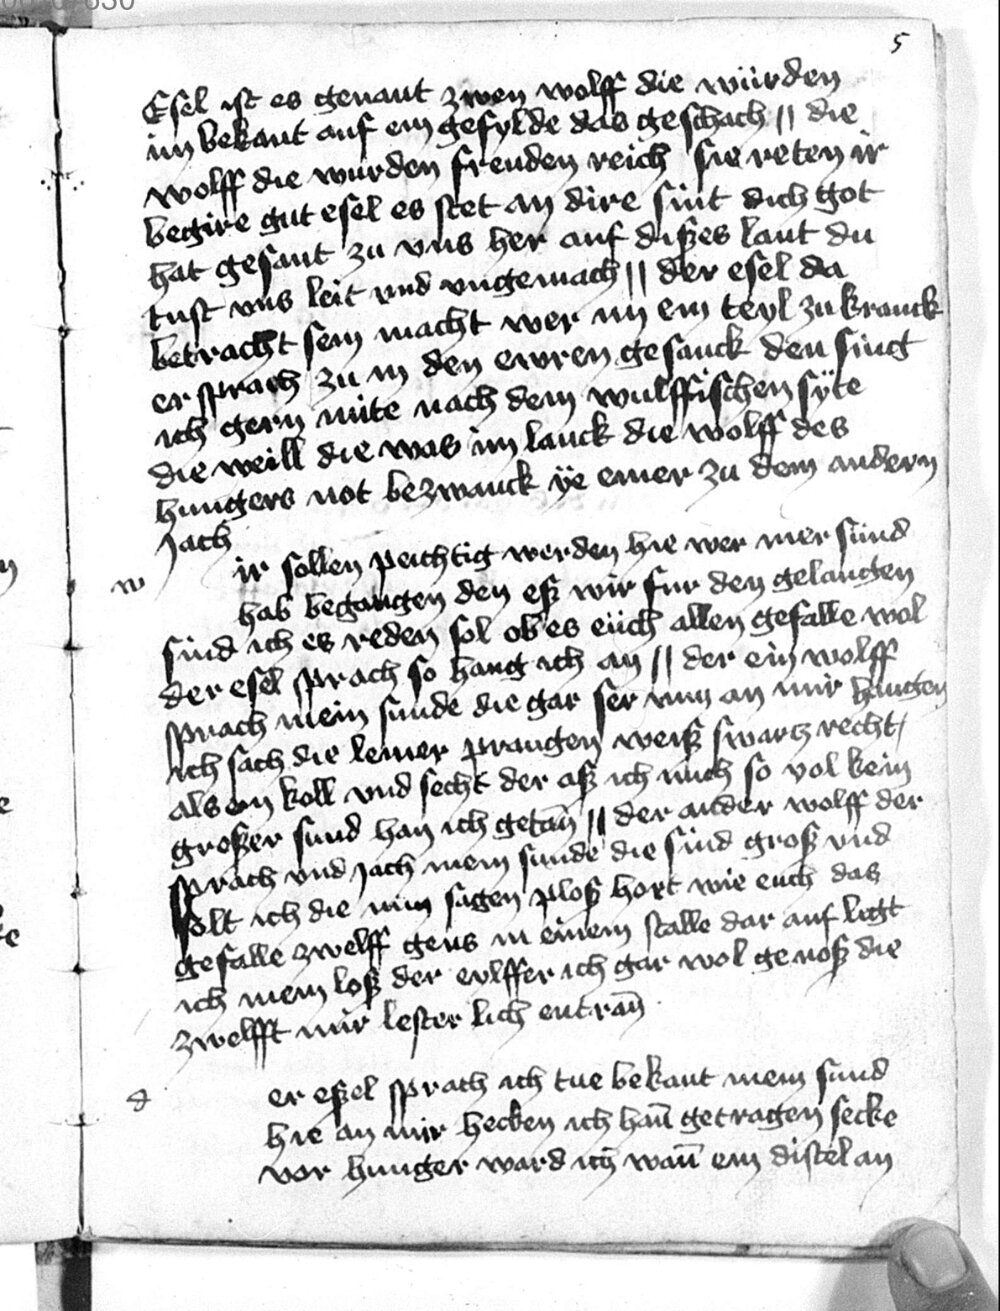 5
Esel ist es genant zwen wolff die würden
im bekant auf ein gefylde das geschach // die
wolff die wurden freuden reich sie reten ir
begire gut esel es stet an dire sint dich got
hat gesant zu vns her auf dißes lant du
tust vns leit vnd vngemach // der esel da
betracht sein macht wer im ein teyl zu kranck
er sprach zu in den ewren gesanck den singt
ich gern mite nach dem wulffischen syte
die weill die was im lanck die wolff des
hungers not bezwanck ye einer zu dem andern
Jach
w
ir sollen peichtig werden hie wer mer sund
hab begangen den eß wir fur den gelangen
sind ich es reden sol ob es eüch allen gefalle wol
der esel sprach so hang ich an // der ein wolff
sprach mein sunde die gar ser nun an mir hangen
ich sach die lemer prangen weiß swartz recht
als ein koll vnd secht der aß ich mich so vol kein
großer sund han ich getan // der ander wolff der
sprach vnd Jach mein sunde die sind groß vnd
solt ich die nun sagen ploß hort wie euch das
gefalle zwelff gens in einem stalle dar auf ligt
ich mein loß der eylffer ich gar wol genoß die
zwelfft mir lester lich entran
d
er eßel sprach ich tue bekant mein sund
hie an mir hecken ich han getragen secke
vor hunger ward ich wan ein distel an